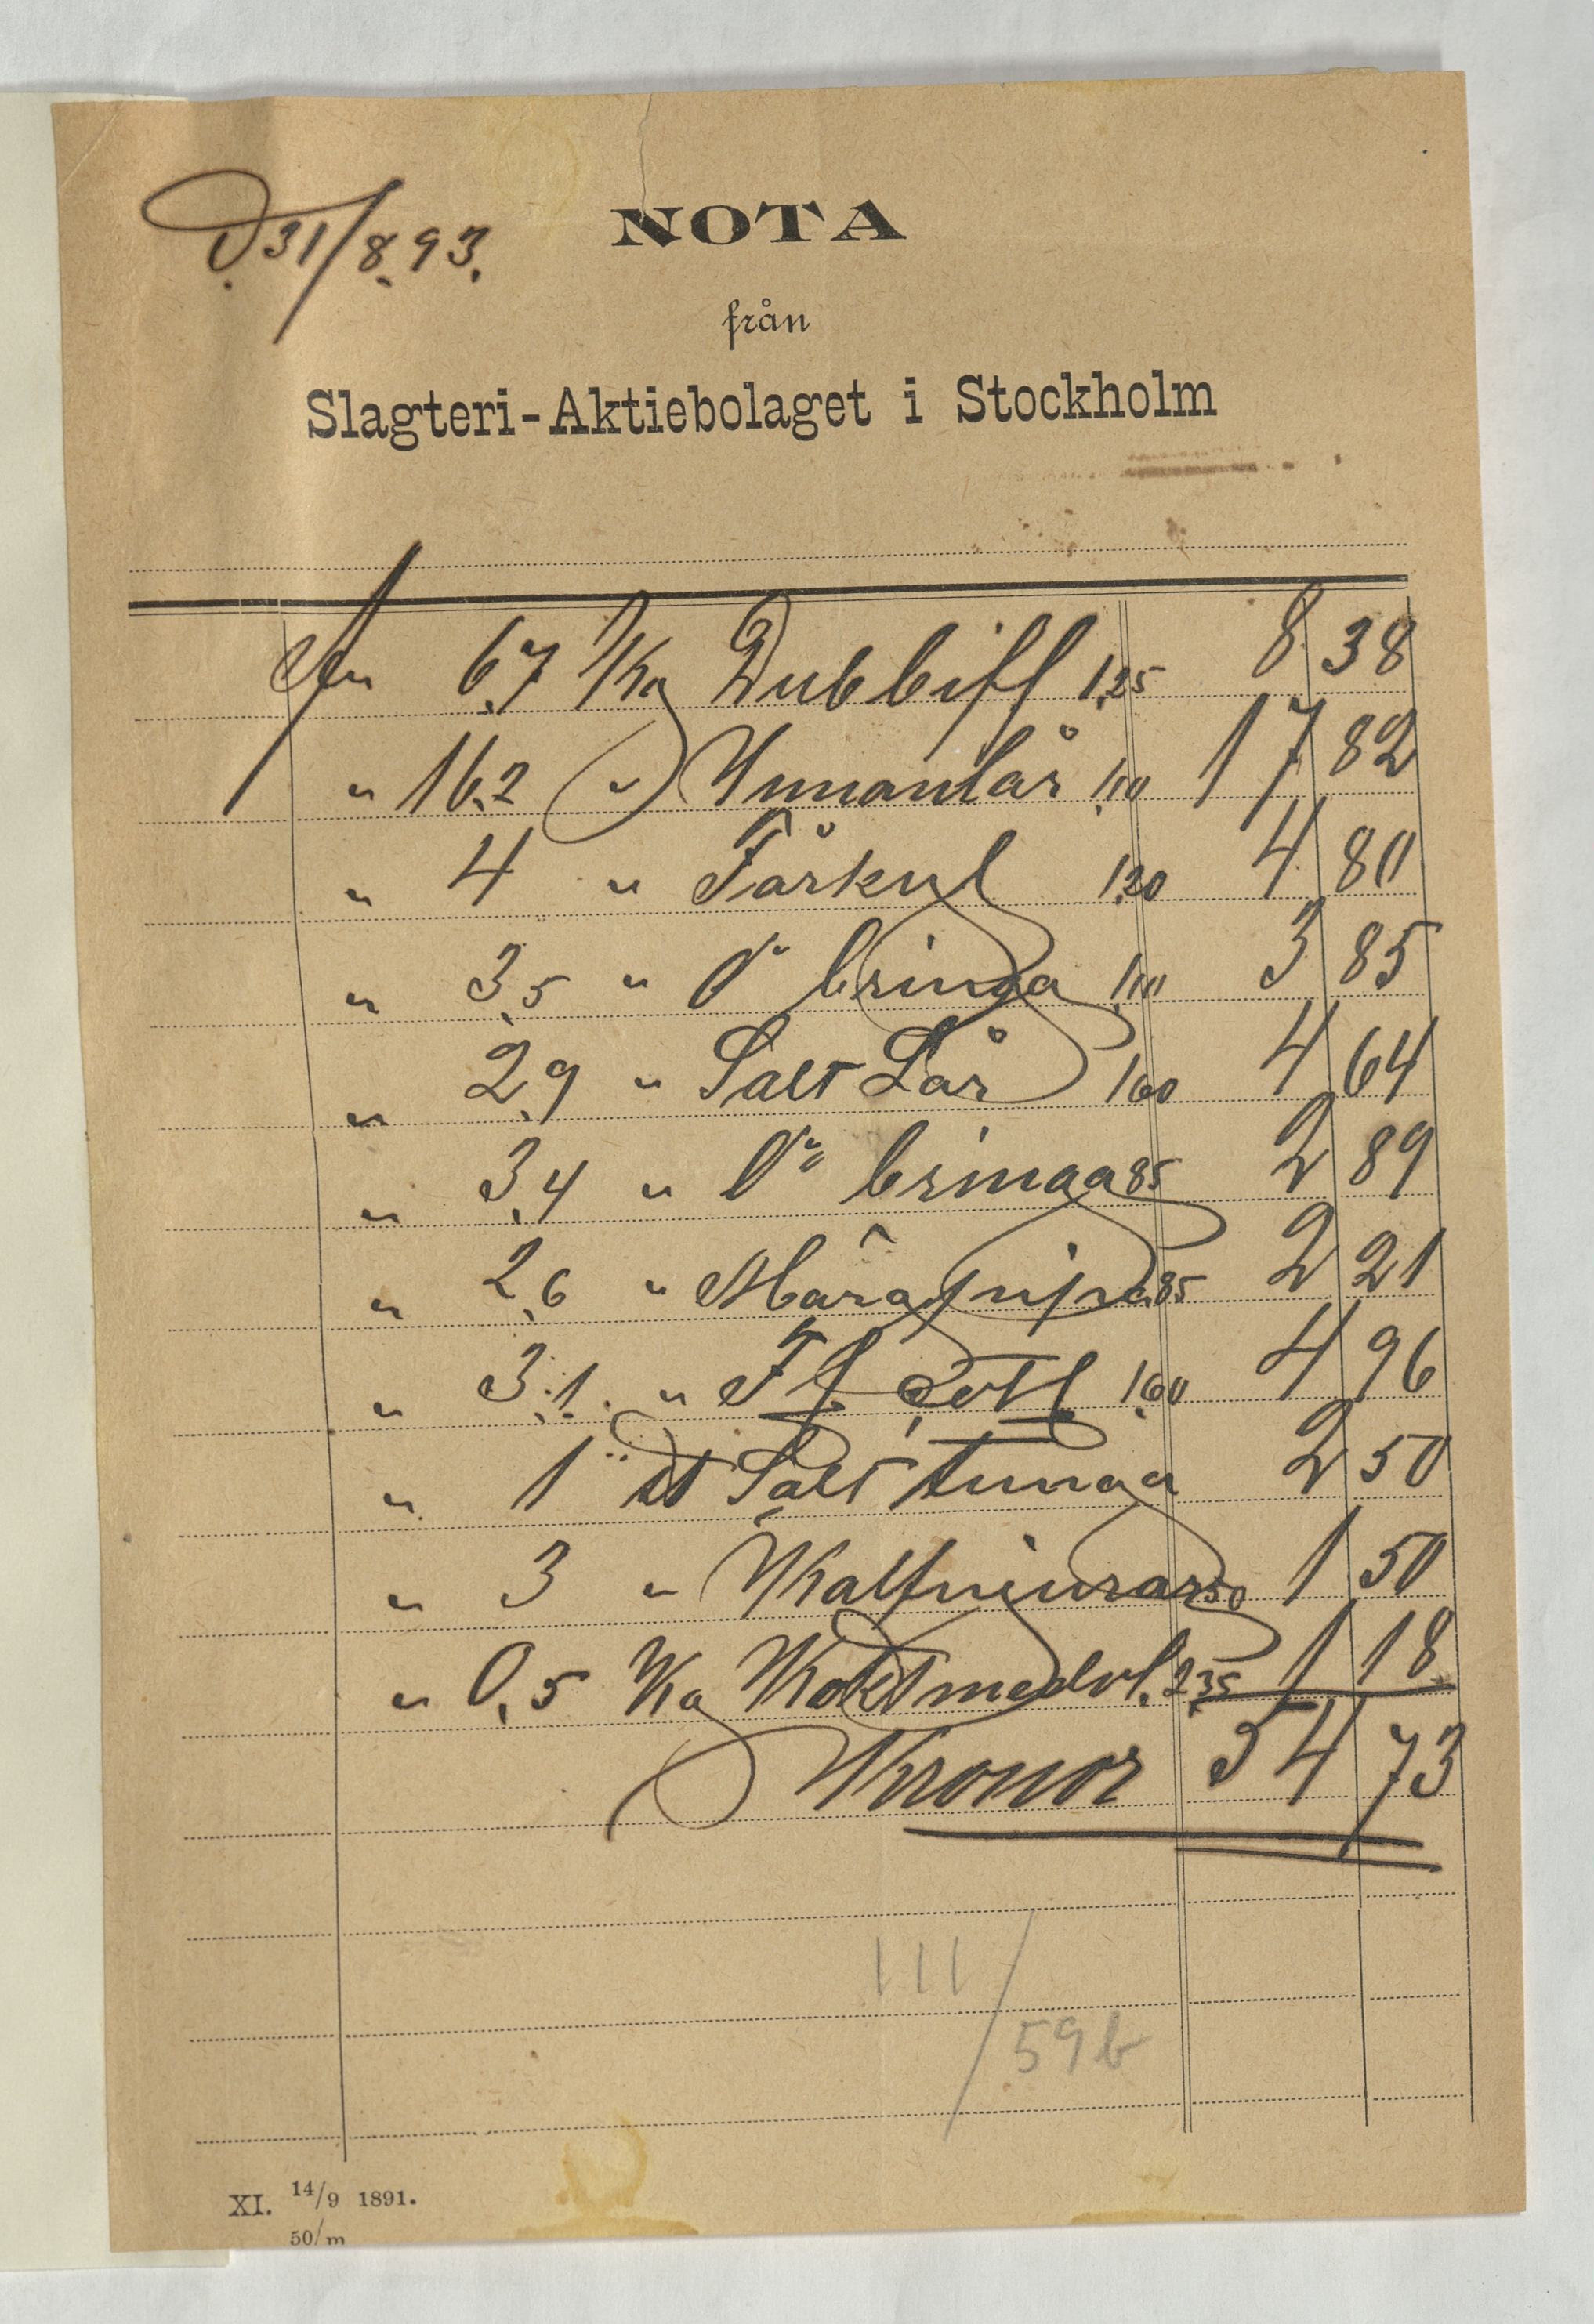 D. 31/8. 93.
NOTA
från
Slagteri-Aktiebolaget i Stockholm
6,7 Kg Dubbiff 1,25 8 38
" 16,2 " Innanlår 1,10 17 82
" 4 " Fårkyl 1,20 4 80
" 3,5 " Do bringa 1,10 3 85
" 2,9 " Salt Lår 1,60 4 64
" 3,4 " Do bringa 85 2 89
" 2,6 " Märgpipa 85 2 21
" 3,1 " 1,60 4 96
" 1 st Salt tunga 2 50
" 3 " Kalfnjurar 50 1 50
" 0,5 Kg Koktmedv. 2,35 1 18
Kronor 54 73
111/59b
XI. 14/9 1891.
50/m